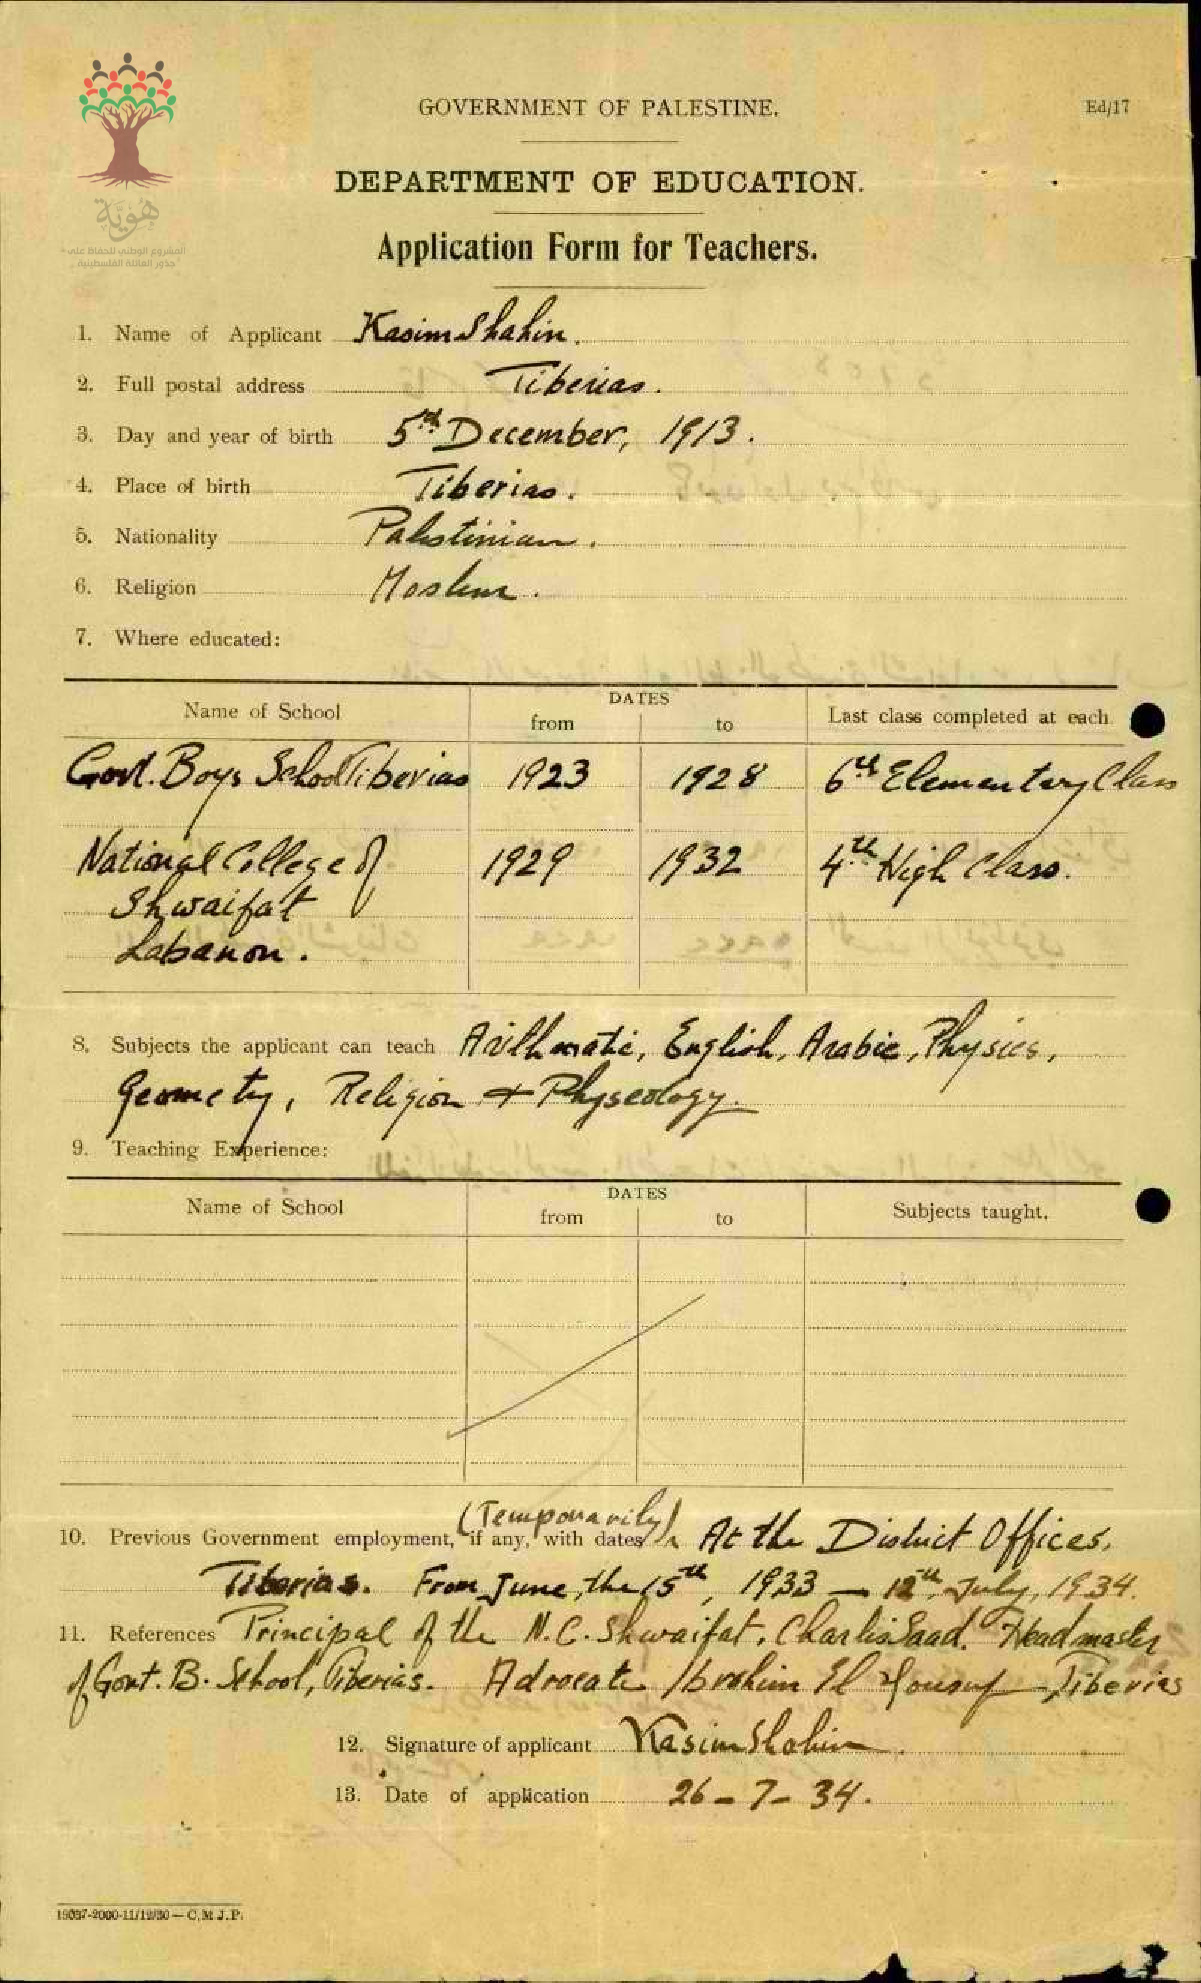 هوية
المشروع الوطني للحفاظ على
جذور العائلة الفلسطينية
GOVERNMENT OF PALESTINE.
Ed/17
DEPARTMENT OF EDUCATION.
Application Form for Teachers.
1. Name of Applicant Kasim Shahin.
2. Full postal address Tiberias.
3. Day and year of birth 5th December, 1913.
4. Place of birth Tiberias.
5. Nationality Palestinian.
6. Religion Moslem.
7. Where educated:
Name of School DATES from to Last class completed at each.
Govt. Boys School Tiberias 1923 1928 6th Elementary Class
National College of 1929 1932 4th High Class.
Shwaifat
Lebanon.
8. Subjects the applicant can teach Arithmatic, English, Arabic, Physics,
Geomety, Religion + Physeology.
9. Teaching Experience:
Name of School DATES from to Subjects taught.
(Temporarily)
10. Previous Government employment, if any, with dates At the District Offices,
Tiberias. From June, the 15th, 1933 — 12th July, 1934.
11. References Principal of the N.C. Shwaifat, Charlis Saad. Headmaster
of Govt. B. School, Tiberias. Advocate Ibrahim El Yousuf, Tiberias
12. Signature of applicant Kasim Shahin.
13. Date of application 26-7-34.
19037-2000-11/12/30—C.M.J.P.